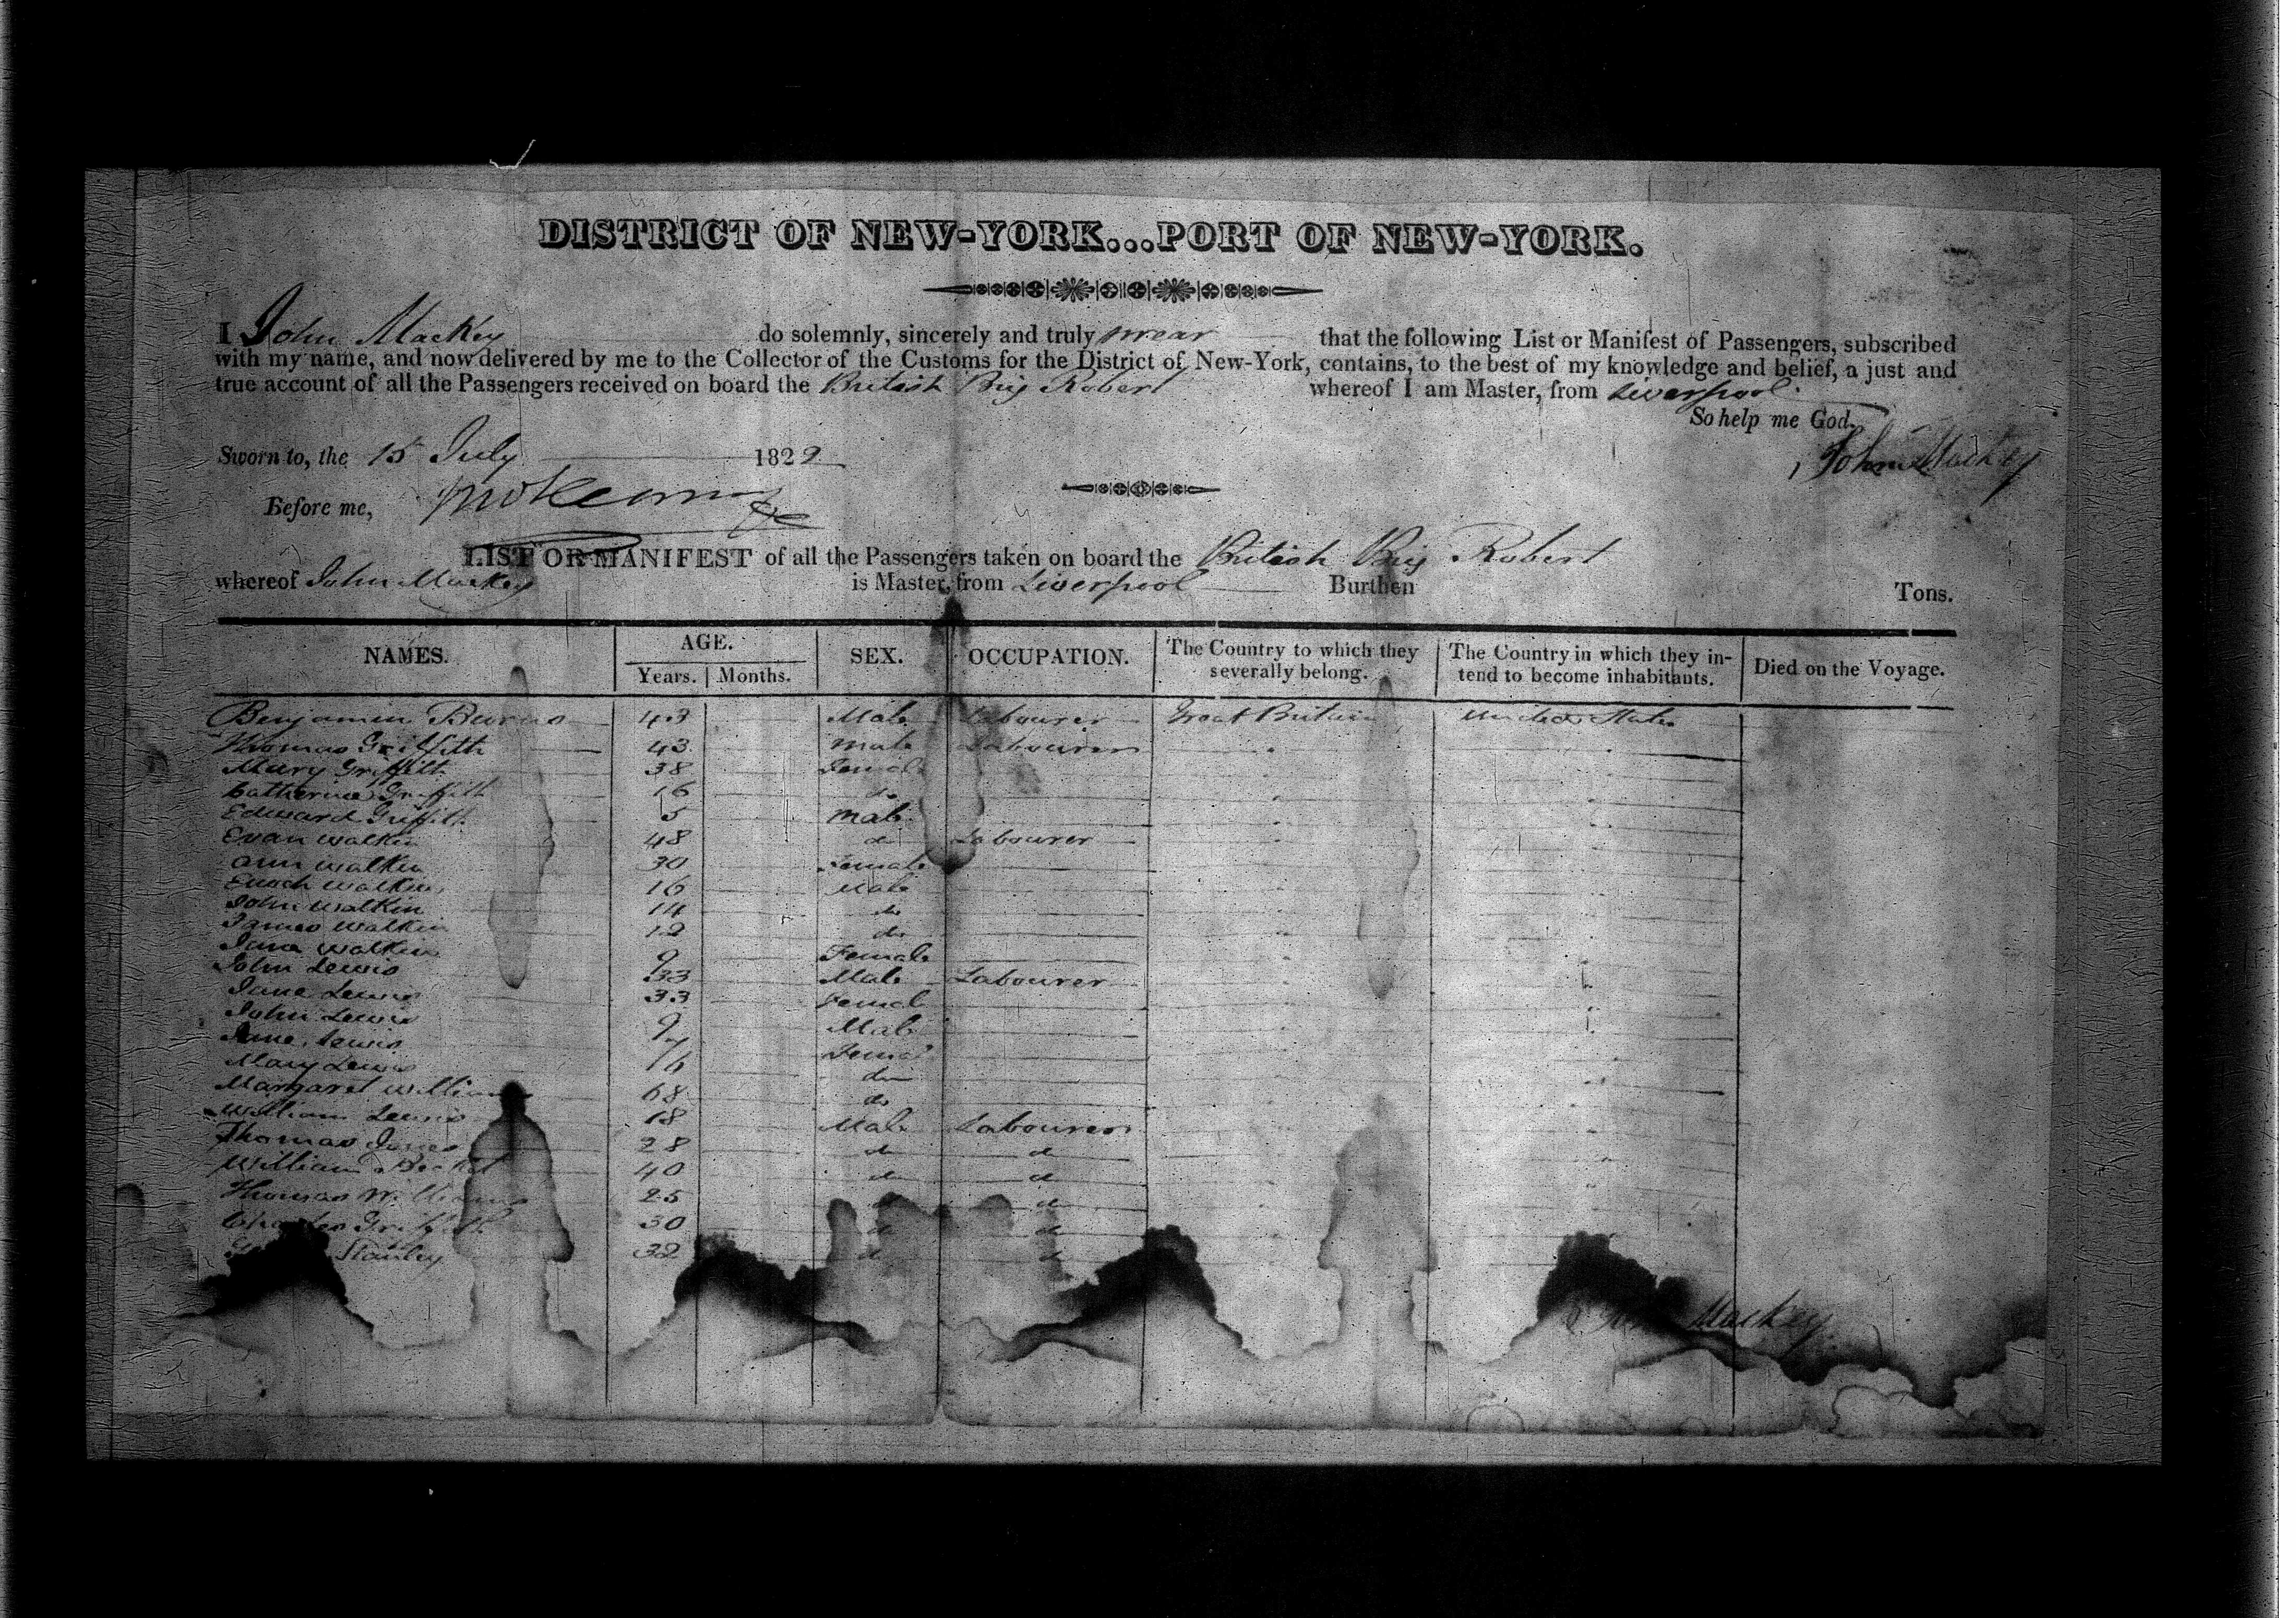 DISTRICT OF NEW-YORK...PORT OF NEW-YORK.
I John Mackey do solemnly, sincerely and truly swear that the following List or Manifest of Passengers, subscribed
with my name, and now delivered by me to the Collector of the Customs for the District of New-York, contains, to the best of my knowledge and belief, a just and
true account of all the Passengers received on board the British Brig Robert whereof I am Master, from Liverpool.
So help me God.
Sworn to, the 15 July 1829 John Mackey
Before me,
LIST OR MANIFEST of all the Passengers taken on board the British Brig Robert
whereof John Mackey is Master, from Liverpool Burthen Tons.
NAMES. AGE. Years. Months. SEX. OCCUPATION. The Country to which they severally belong. The Country in which they intend to become inhabitants. Died on the Voyage.
Benjamin Burns 43 Male Labourer Great Britain United States
Thomas Griffith 43 Male Labourer
Mary Griffith 38 Female
Catherine Griffith 16 do
Edward Griffith 5 Male
Evan Walkin 48 do Labourer
Ann Walkin 30 Female
Enoch Walkin 16 Male
John Walkin 14 do
James Walkin 12 do
Jane Walkin 9 Female
John Lewis 33 Male Labourer
Jane Lewis 33 Female
John Lewis 9 Male
Jane Lewis 7 Female
Mary Lewis do
Margaret William 68 do
William Lewis 18 Male Labourer
Thomas James 28 do do
William 40 do do
Thomas Williams 25 do do
Charles Griffith 30 do do
Stanley 32 do do
John Mackey